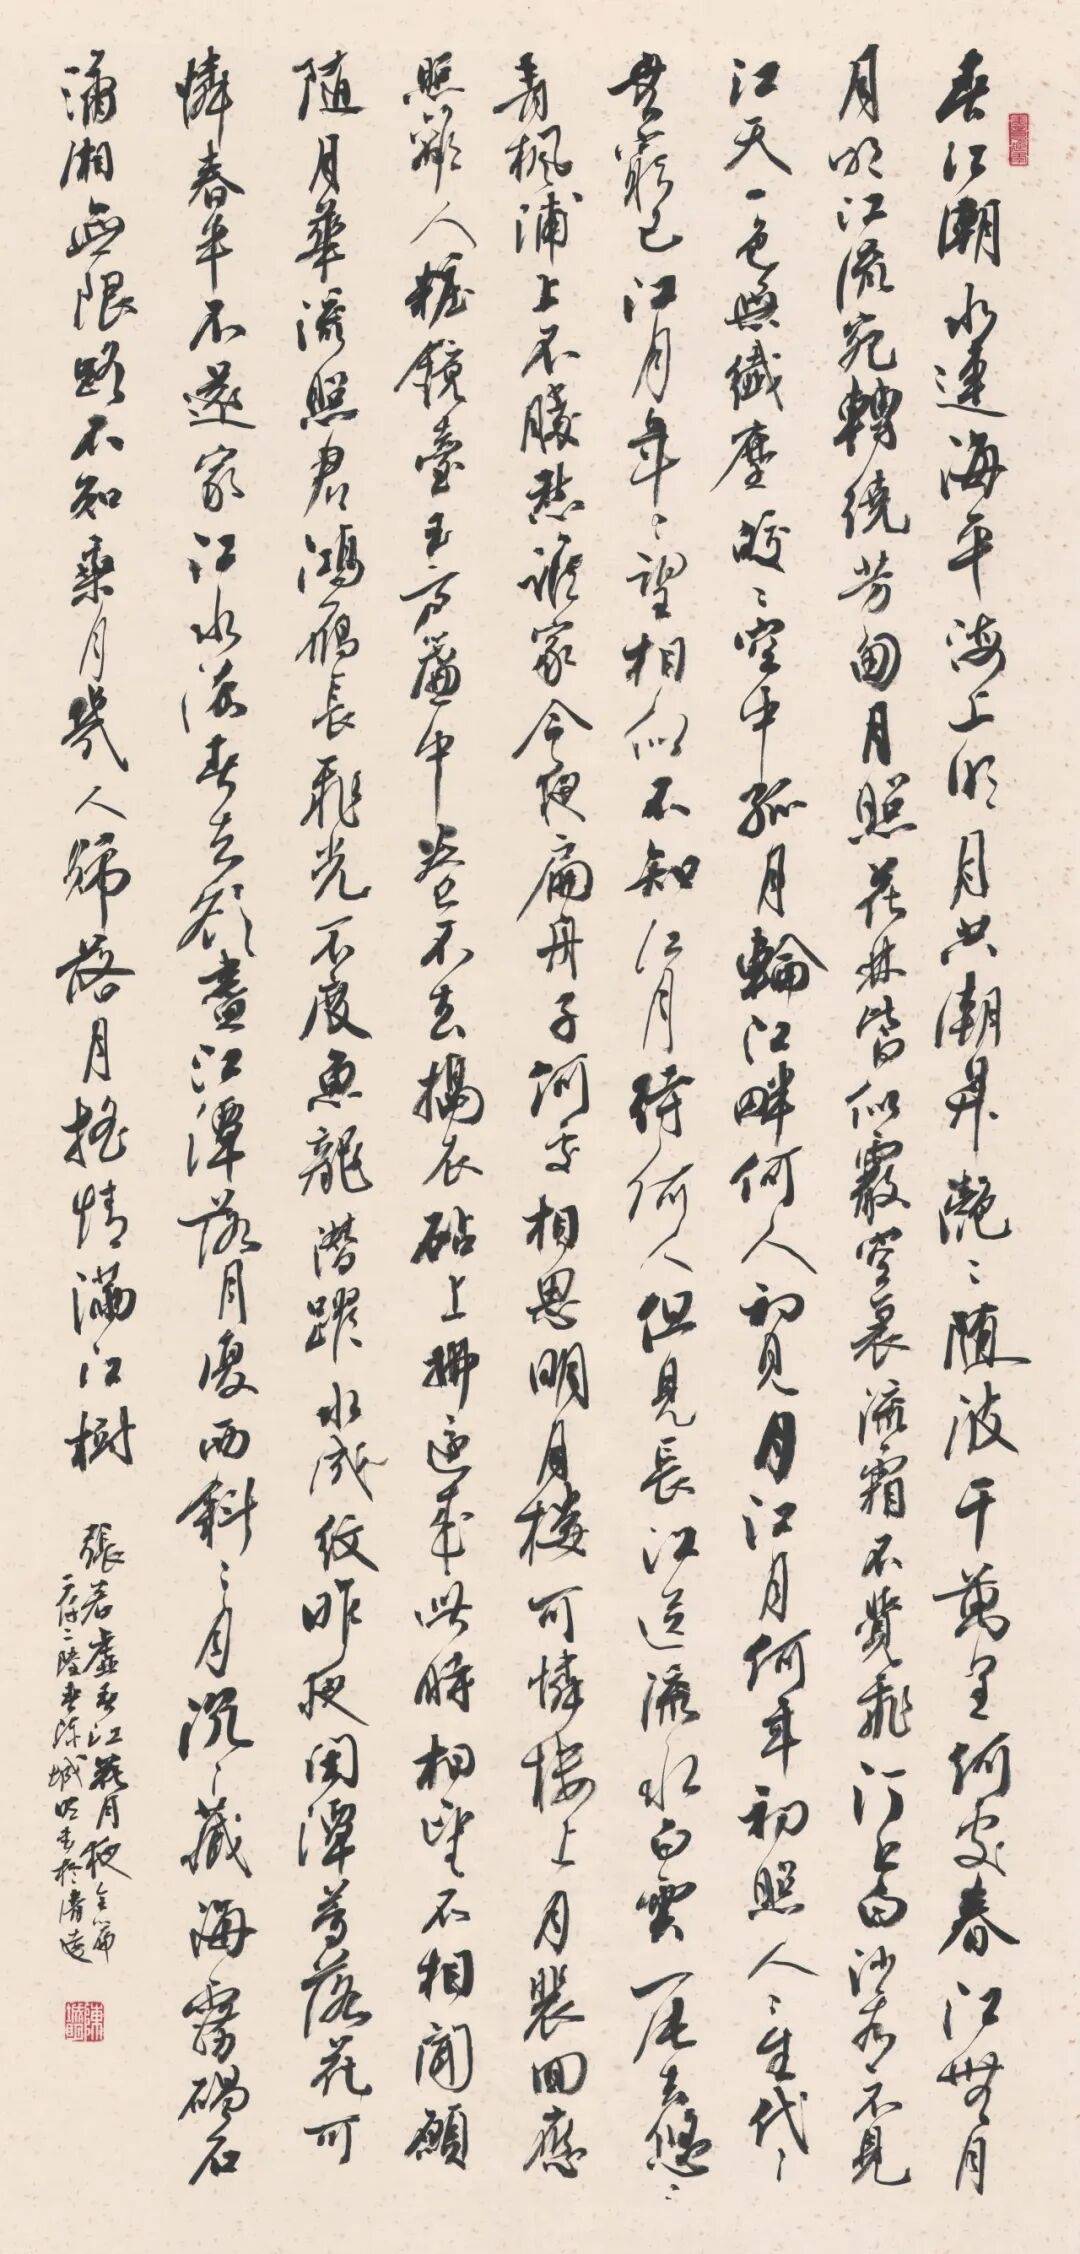 春江潮水連海平海上明月共潮升灔〻随波千萬里何處春江無月
月明江流宛轉繞芳甸月照花林皆似霰空裏流霜不覺飛汀上白沙看不見
江天一色無纖塵皎〻空中孤月輪江畔何人初見月江月何年初照人〻生代〻
無窮已江月年〻望相似不知江月待何人但見長江送流水白雲一片去悠〻
青楓浦上不勝愁誰家今夜扁舟子何處相思明月樓可憐樓上月裴回應
照離人粧鏡臺玉戶簾中卷不去搗衣砧上拂還來此時相望不相聞願
随月華流照君鴻雁長飛光不度魚龍潛躍水成紋昨夜閑潭夢落花可
憐春半不還家江水流春去欲盡江潭落月復西斜〻月沉〻藏海霧碣石
瀟湘無限路不知乘月幾人歸落月摇情滿江樹
張若虛春江花月夜全篇
二〇二陸春陳城明書於清遠